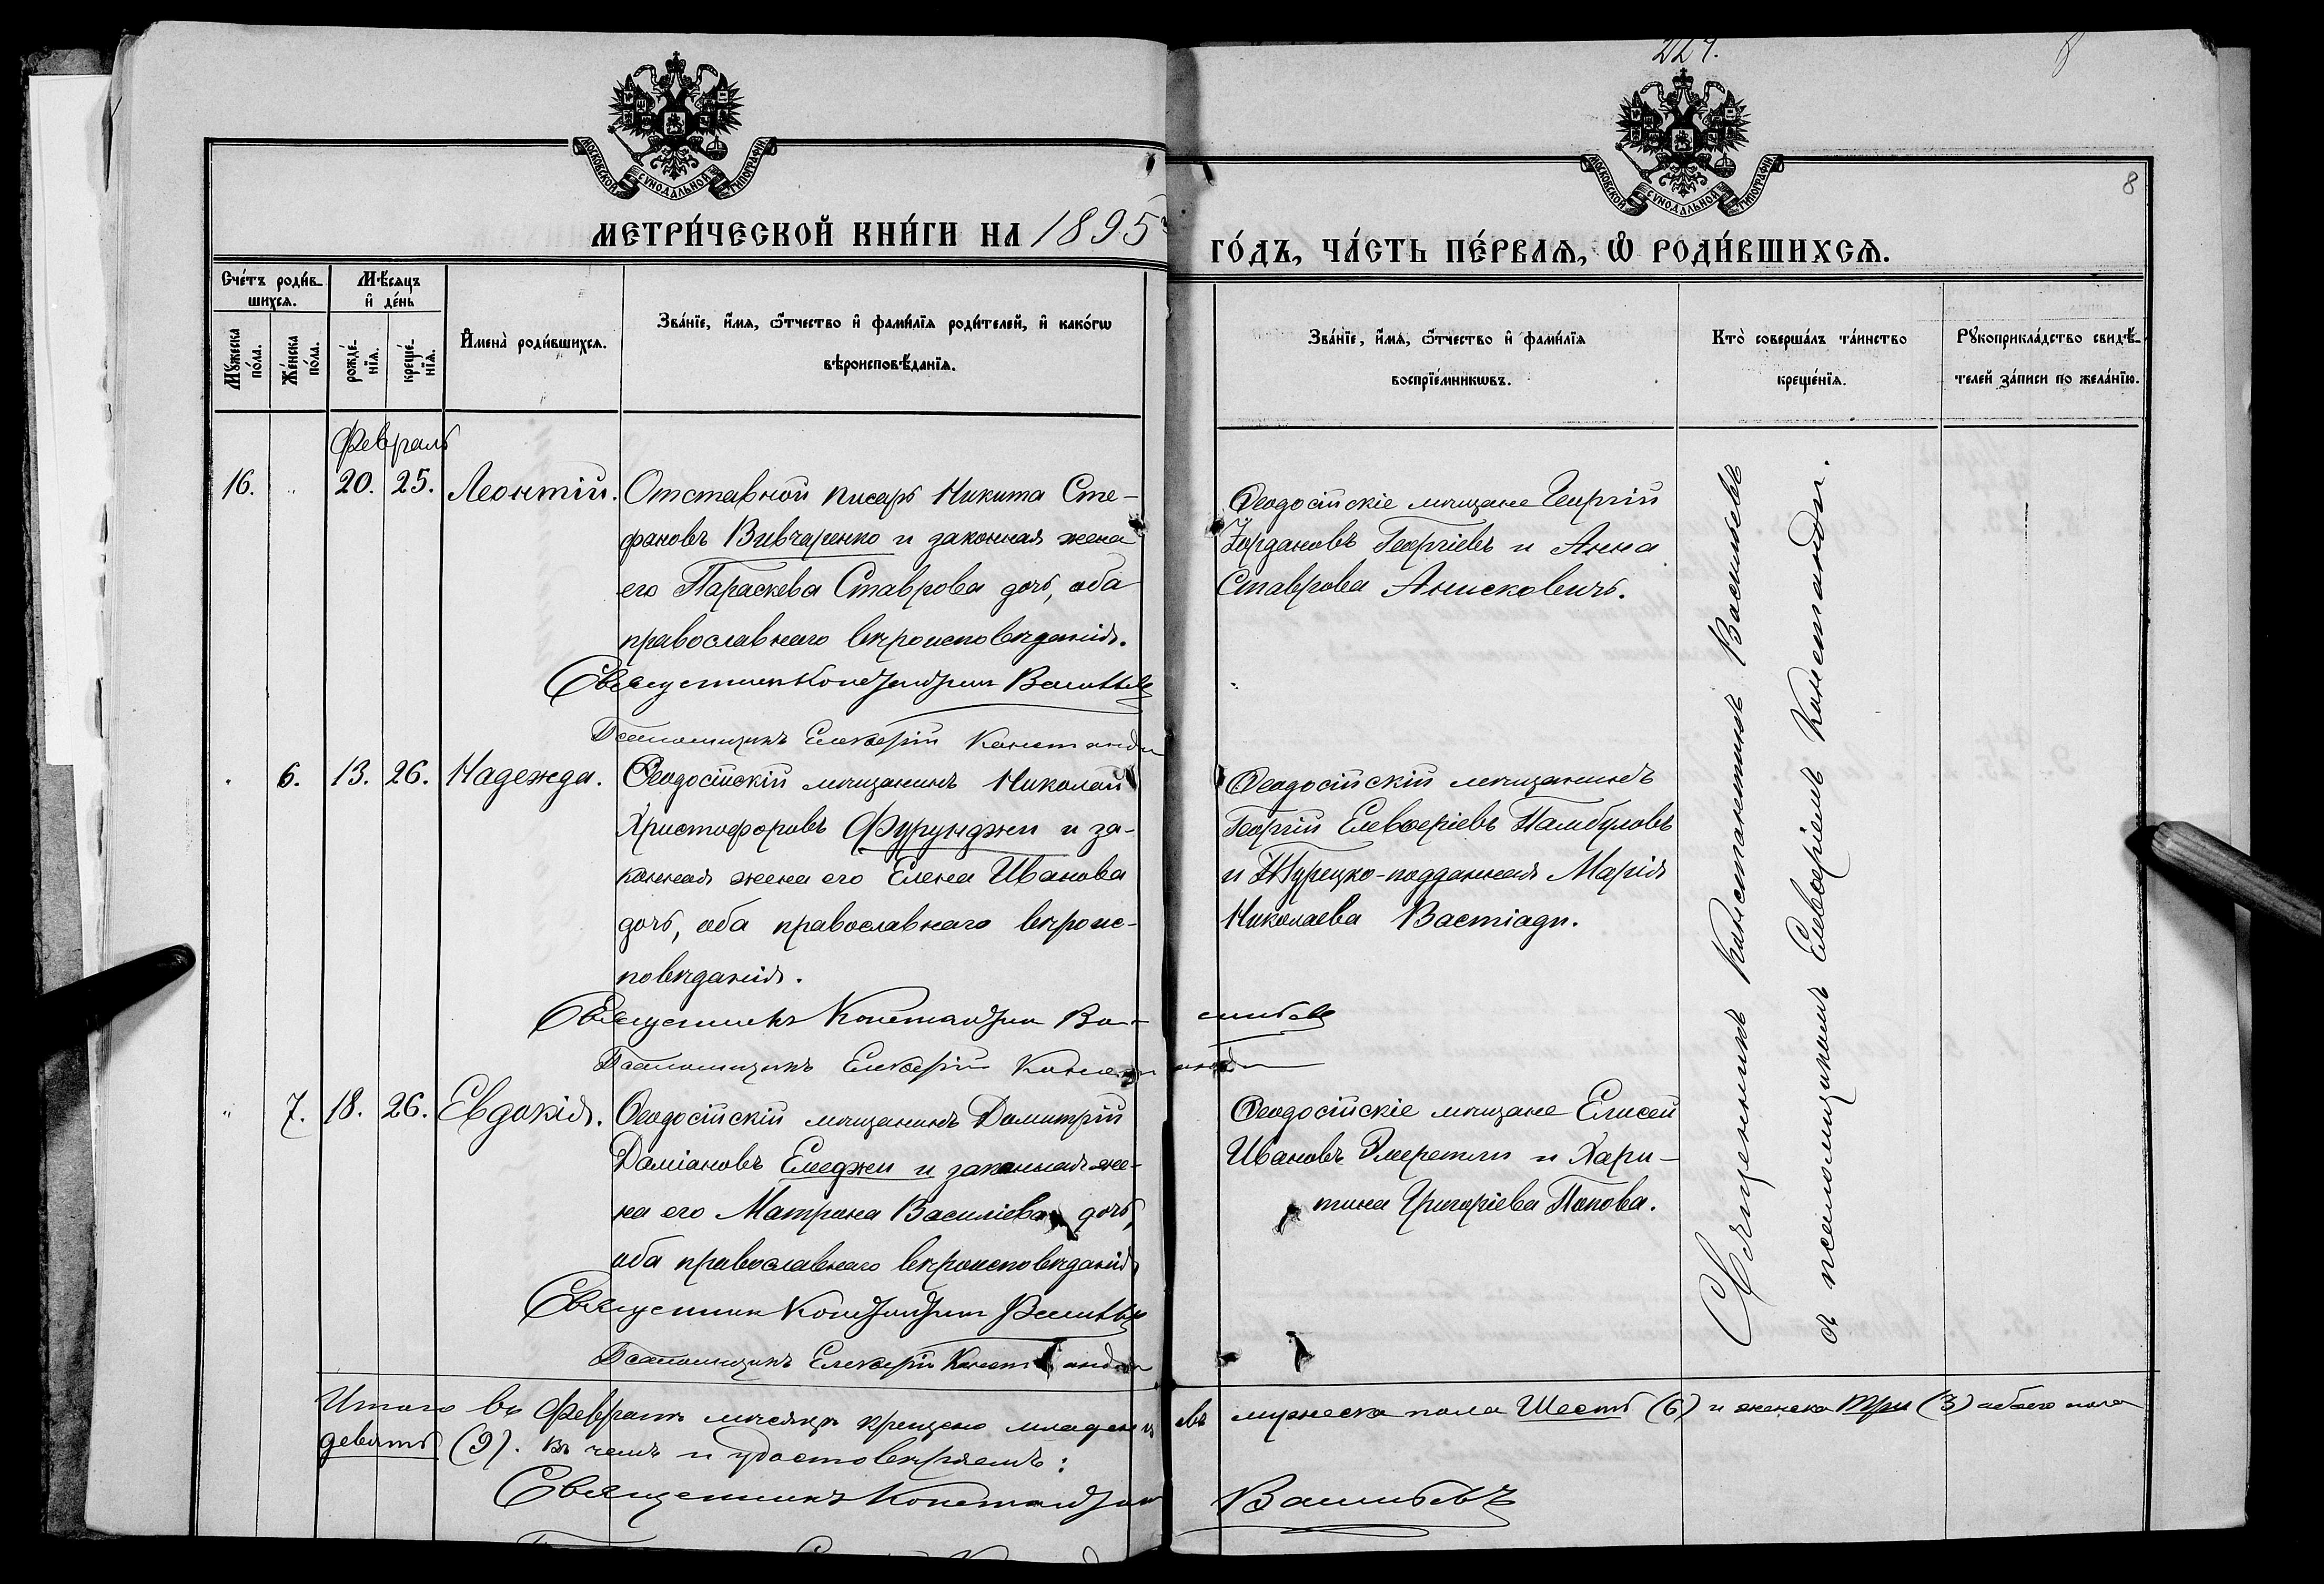 224.
8
8
МОСКОВСКОЙ СѴНОДАЛЬНОЙ ТИПОГРАФІИ
МОСКОВСКОЙ СѴНОДАЛЬНОЙ ТИПОГРАФІИ
МЕТРИ́ЧЕСКОЙ КНИ́ГИ НА 1895
ГО́ДЪ, ЧА́СТЬ ПЕ́РВАЯ, Ѽ РОДИ́ВШИХСЯ.
Сче́тъ роди́в-
шихся.
Мѣ́сяцъ
и де́нь
Мꙋ́жеска по́ла.
Же́нска по́ла.
рожде́-нїя.
креще́-нїя.
И҆мена̀ роди́вшихся.
Зва́нїе, и҆́мя, ѻ҆́тчество и҆ фами́лїя роди́телей, и҆ како́гѡ
вѣроисповѣ́данїя.
Зва́нїе, и҆́мя, ѻ҆́тчество и҆ фами́лїя
воспрїе́мникѡвъ.
Кто̀ соверша́лъ та́инство
креще́нїя.
Рꙋкоприкла́дство свидѣ́-
телей за́писи по жела́нїю.
Февраль
16. " 20. 25. Леонтій. Отставной писарь Никита Сте-
фановъ Вивчаренко и законная жена
его Параскева Ставрова дочь, оба
православнаго вѣроисповѣданія.
Священникъ Константинъ Васильевъ
Псаломщикъ Елевѳерій Констанди
Ѳеодосійскіе мѣщане Георгій
Іордановъ Георгіевъ и Анна
Ставрова Анисковичъ.
" 6. 13. 26. Надежда. Ѳеодосійскій мѣщанинъ Николай
Христофоровъ Фурунджи и за-
конная жена его Елена Иванова
дочь, оба православнаго вѣроис-
повѣданія.
Священникъ Константинъ Ва-сильевъ
Псаломщикъ Елевѳерій Констанди
Ѳеодосійскій мѣщанинъ
Георгій Елевѳеріевъ Памбуловъ
и Турецко-подданная Марія
Николаева Вастіади.
" 7. 18. 26. Евдокія. Ѳеодосійскій мѣщанинъ Димитрій
Даміановъ Емеджи и законная же-
на его Матрона Василіева дочь,
оба православнаго вѣроисповѣданія
Священникъ Константинъ Васильевъ
Псаломщикъ Елевѳерій Констанди
Ѳеодосійскіе мѣщане Елисей
Ивановъ Эмеретли и Хари-
тина Григоріева Попова.
Священникъ Константинъ Васильевъ
съ псаломщикомъ Елевѳеріемъ Констанди.
Итого въ Февралѣ мѣсяцѣ крещено младенцевъ мужеска пола Шесть (6) и женска три (3) обоего пола
девять (9). Въ чемъ и удостовѣряемъ:
Священникъ Константинъ Васильевъ